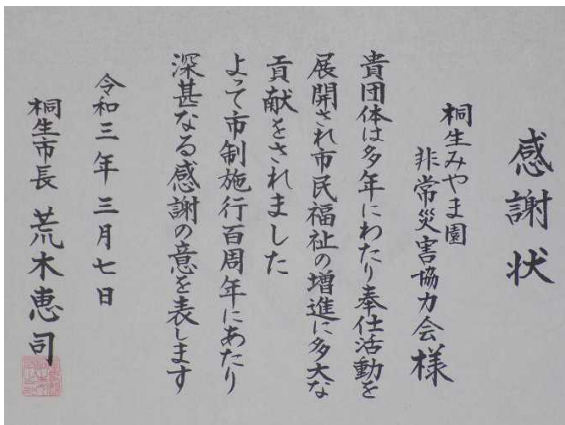 感謝状
桐生みやま園
非常災害協力会様
貴団体は多年にわたり奉仕活動を
展開され市民福祉の増進に多大な
貢献をされました
よって市制施行百周年にあたり
深甚なる感謝の意を表します
令和三年三月七日
桐生市長 荒木恵司